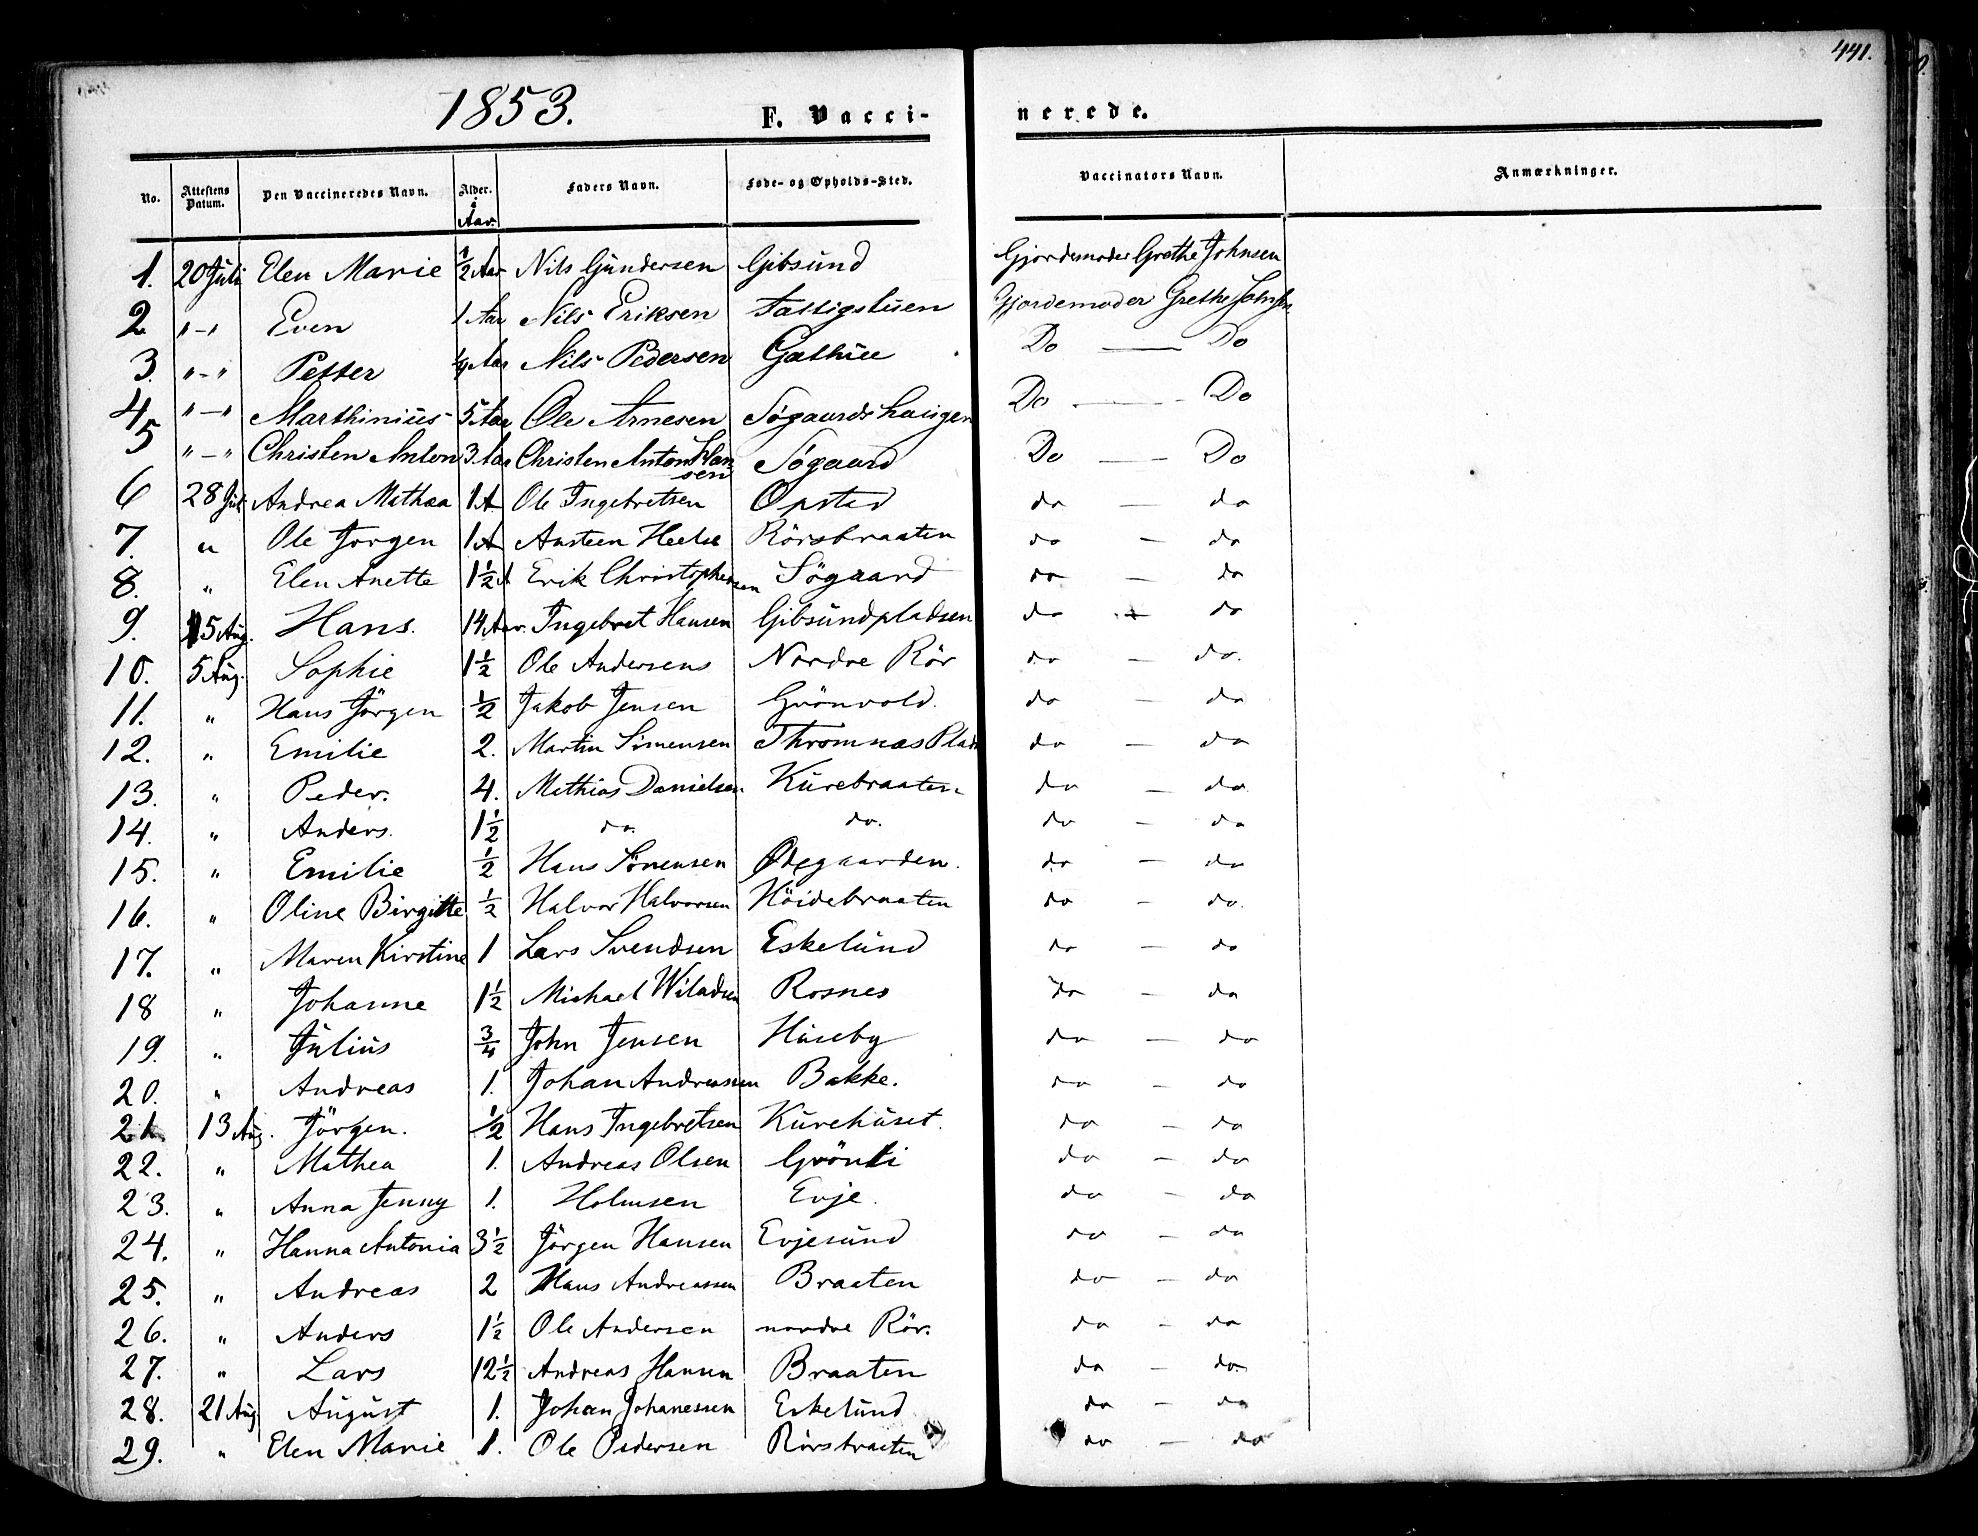 441.
1853. F. Vacci- nerede.
No. Attestens Datum. Den Vaccineredes Navn. Alder. i Aar. Faders Navn. Føde- og Opholds-Sted. Vaccinators Navn. Anmærkninger.
1. 20 Juli Elen Marie ½ Aar Nils Gundersen Gibsund Gjordemoder Grethe Johnsen
2 "-" Even 1 Aar Nils Eriksen Fattigstuen Gjordemoder Grethe Johnsen
3. "-" Petter ¼ Aar Nils Pedersen Do — Do
4 "-" Marthinius 5 Aar Ole Arnesen Søgaardshaugen Do — Do
5 "-" Christen Anton 3 Aar Christen Anton Hansen Søgaard Do — Do
6 28 Jul Andrea Mathea 1 A Ole Ingebretsen Opstad do — do
7. " Ole Jørgen 1 A Austeen Rörsbraaten do — do
8. " Elen Anette 1½ A Erik Christophersen Sögaard do — do
9. 5 Aug. Hans. 14 Aar. Ingebret Hansen Gibsundpladsen do — do
10. 5 Aug. Sophie 1½ Ole Andersens Nordre Rör do — do.
11. " Hans Jörgen ½ Jakob Jensen Grönvold. do — do
12. " Emilie 2. Martin Simensen Thromnæs Plads do — do
13. " Peder. 4. Mathias Danielsen Kurebraaten do — do
14. " Anders. 1½ do. do. do — do
15. " Emilie ½ Hans Sörensen Ødegaarden. do — do
16. " Oline Birgitte ½ Halvor Halvorsen Höidebraaten do — do.
17. " Maren Kirstine 1 Lars Svendsen Eskelund do — do
18 " Johanne 1½ Michael Wiladsen Rosnes do — do
19. " Julius ¾ John Jensen Huseby do — do
20. " Andreas 1. Johan Andreassen Bakke. do — do
21. 13 Aug. Jörgen. ½ Hans Ingebretsen Kurehuset. do — do
22. " Mathea 1. Andreas Olsen Grönli do — do
23. " Anna Jenny 1. Holmsen Evje. do — do
24. " Hanna Antonia 3½ Jörgen Hansen Evjesund do — do
25. " Andreas 2 Hans Andreassen Braaten do — do
26. " Anders 1½ Ole Andersen nordre Rör. do — do
27. " Lars 12½ Andreas Hansen Braaten do — do
28. 21 Aug August 1. Johan Johanessen Eskelund do — do
29. " Elen Marie 1. Ole Pedersen Rörsbraaten do — do